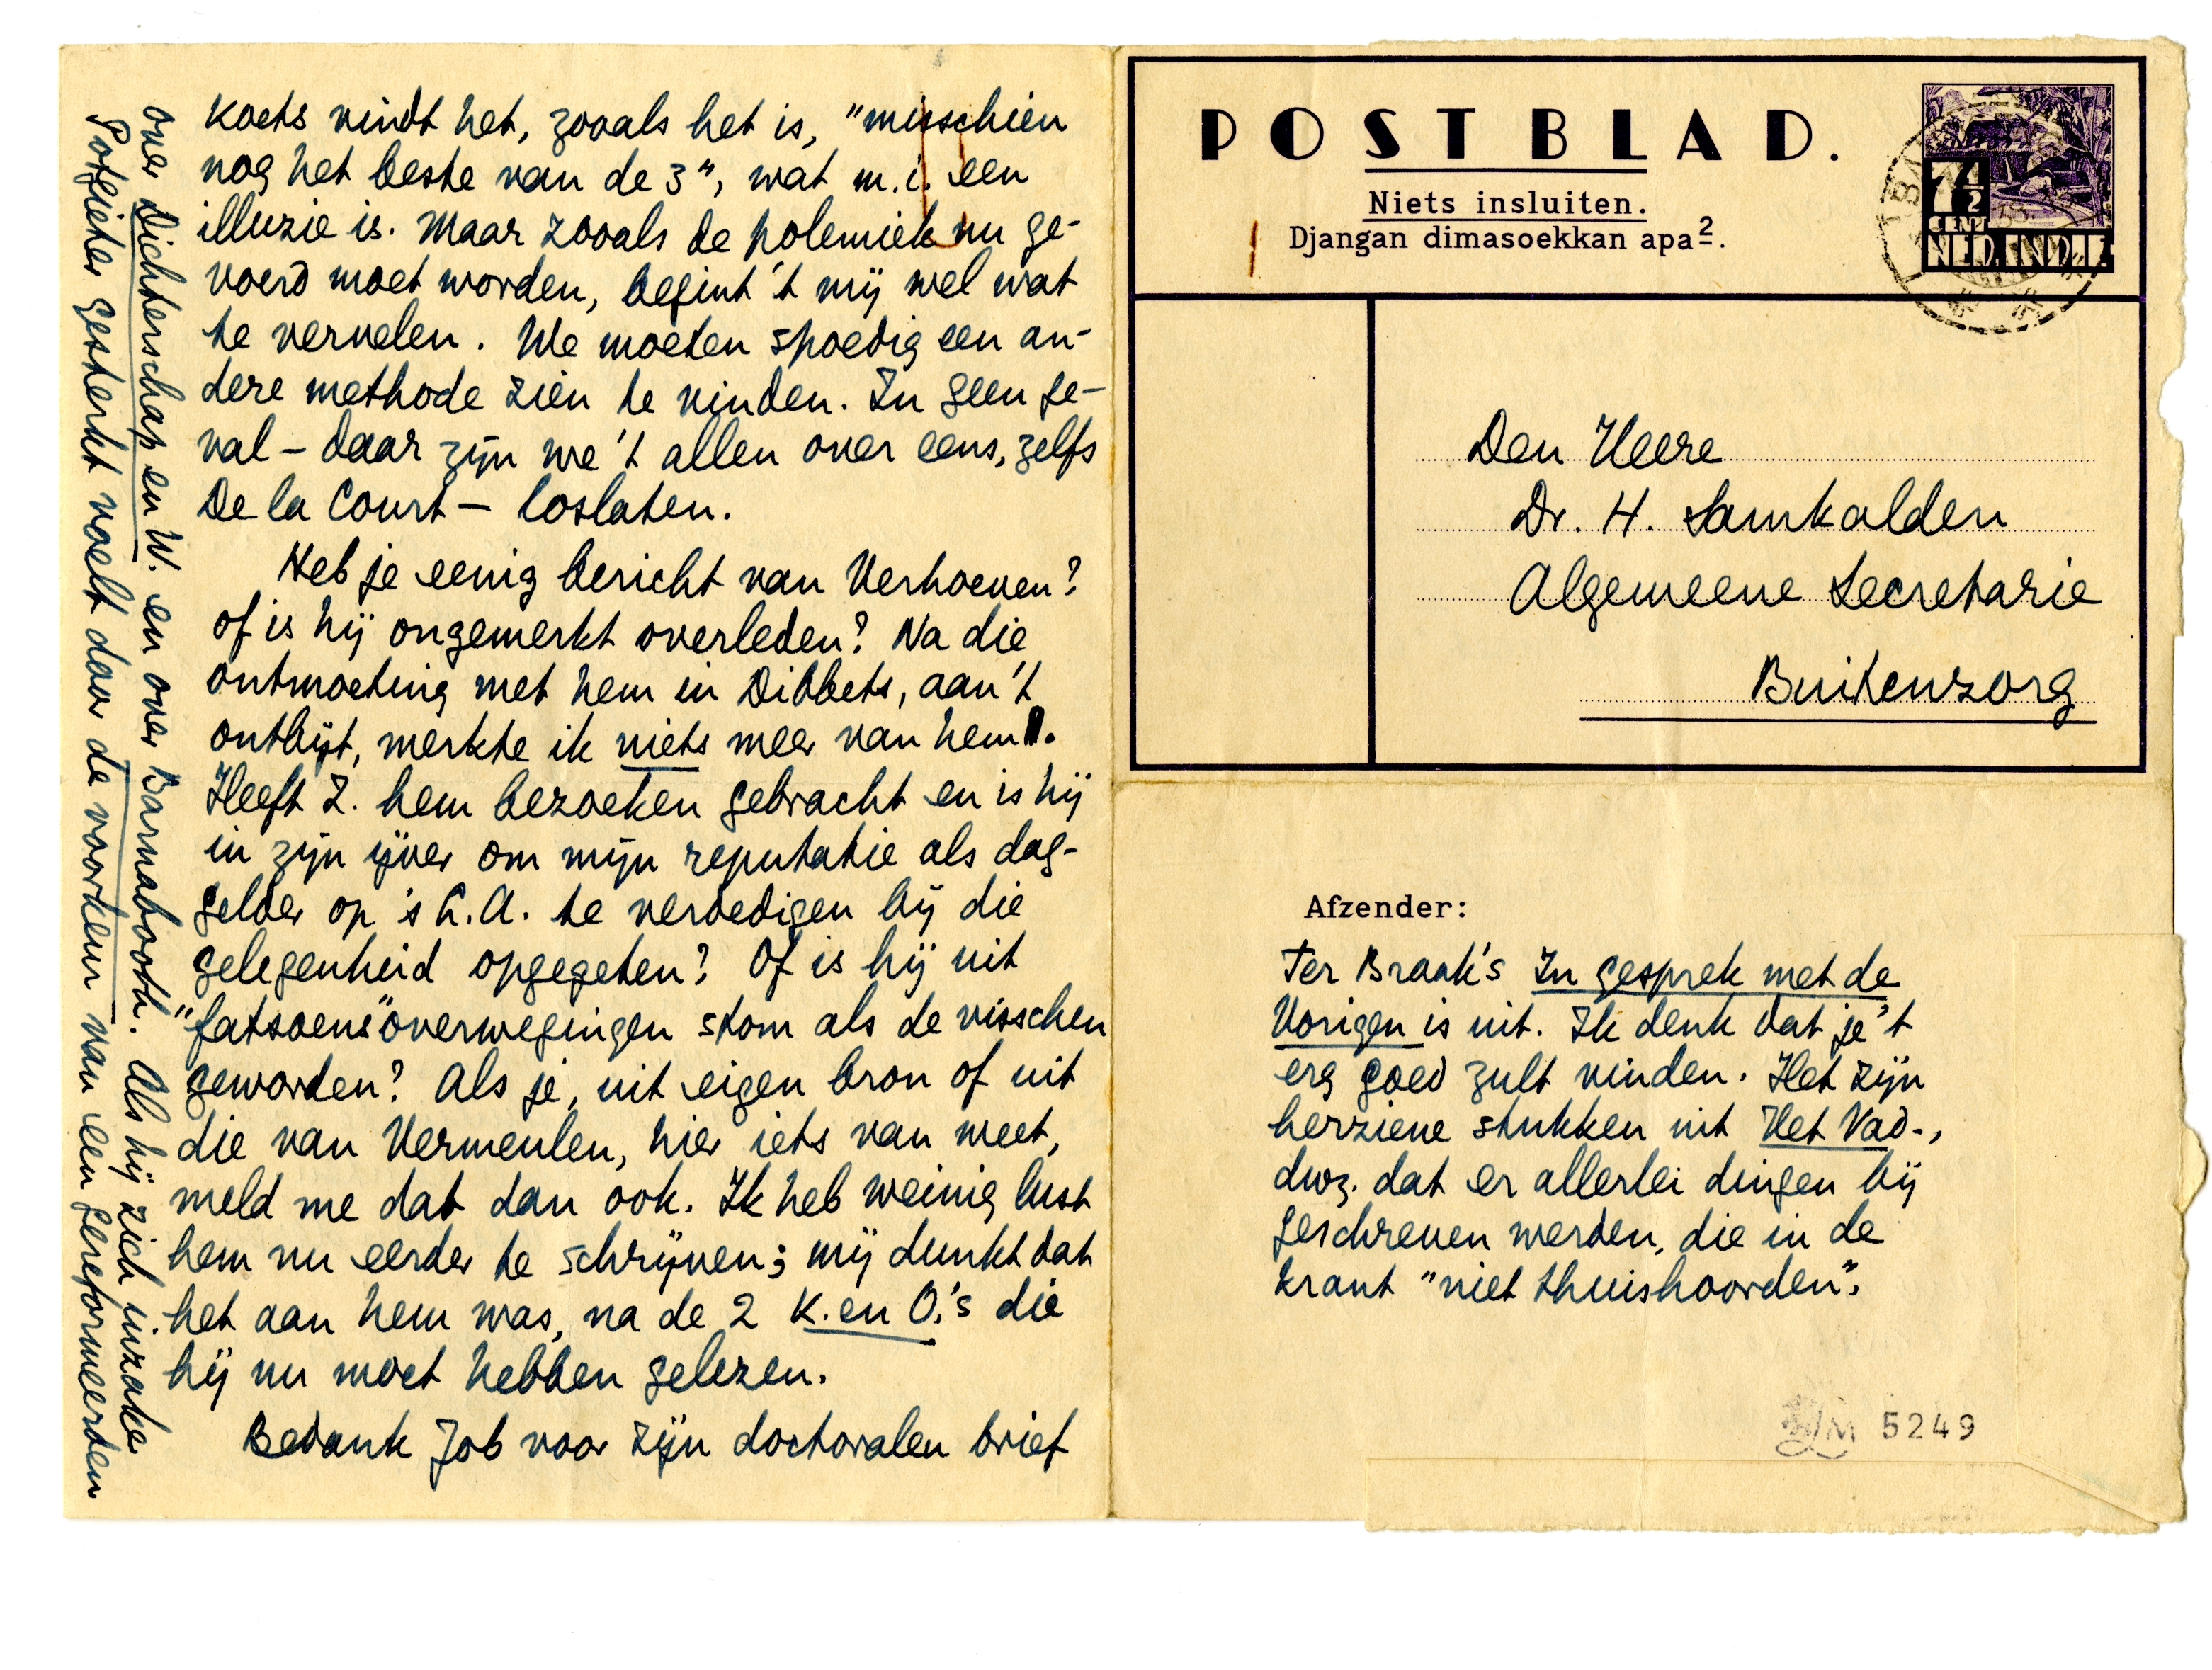 Koets vindt het, zooals het is, "misschien
nog het beste van de 3", wat m.i. een
illuzie is. Maar zooals de polemiek nu ge-
voerd moet worden, begint 't mij wel wat
te vervelen. We moeten spoedig een an-
dere methode zien te vinden. In geen ge-
val – daar zijn we 't allen over eens, zelfs
De la Court – loslaten.
Heb je eenig bericht van Verhoeven?
of is hij ongemerkt overleden? Na die
ontmoeting met hem in Dibbets, aan 't
ontbijt, merkte ik niets meer van hem.
Heeft Z. hem bezoeken gebracht en is hij
in zijn ijver om mijn reputatie als dag-
gelder op 's L.A. te verdedigen bij die
gelegenheid opgegeten? Of is hij uit
"fatsoens"overwegingen stom als de visschen
geworden? Als je, uit eigen bron of uit
die van Vermeulen, hier iets van weet,
meld me dat dan ook. Ik heb weinig lust
hem nu eerder te schrijven; mij dunkt dat
het aan hem was, na de 2 K. en O.'s die
hij nu moet hebben gelezen.
Bedank Job voor zijn doctoralen brief
over Dichterschap en W. en over Barnabooth. Als hij zich inzake
Potgieter gesterkt voelt door de voorkeur van een gereformeerden
POSTBLAD.
Niets insluiten.
Djangan dimasoekkan apa2.
7½
CENT
NED. INDIE
Den Heere
Dr. H. Samkalden
Algemeene Secretarie
Buitenzorg
Afzender:
Ter Braak's In gesprek met de
Vorigen is uit. Ik denk dat je 't
erg goed zult vinden. Het zijn
herziene stukken uit Het Vad.,
dwz. dat er allerlei dingen bij
geschreven werden, die in de
krant "niet thuishoorden".
LM 5249